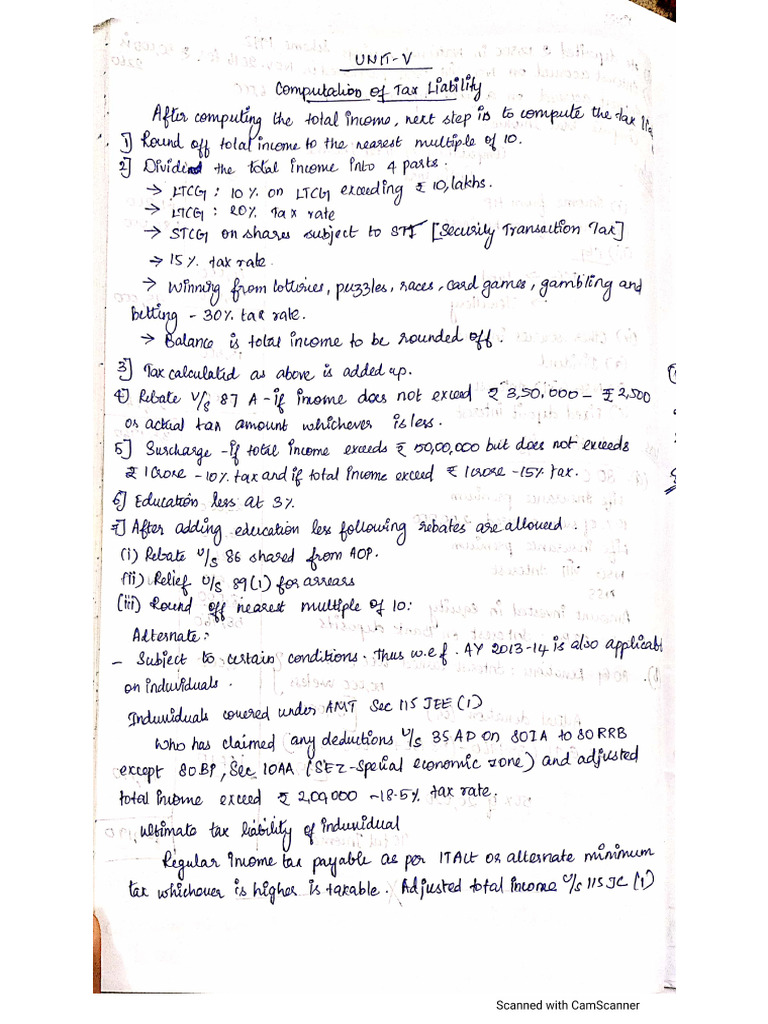 UNIT-V
Computation of Tax Liability
After computing the total income, next step is to compute the tax
1] Round off total income to the nearest multiple of 10.
2] Dividind the total income into 4 parts.
→ LTCG : 10% on LTCG exceeding ₹ 10,lakhs.
→ LTCG : 20% Tax rate
→ STCG on shares subject to STT [Security Transaction Tax]
→ 15% tax rate.
→ Winning from lotteries, puzzles, races, card games, gambling and
betting - 30% tax rate.
→ Balance is total income to be rounded off.
3] Tax calculated as above is added up.
4] Rebate U/s 87 A - if income does not exceed ₹ 3,50,000 - ₹ 2,500
or actual tax amount whichever is less.
5] Surcharge - If total income exceeds ₹ 50,00,000 but does not exceeds
₹ 1 crore - 10% tax and if total income exceed ₹ 1 crore - 15% tax.
6] Education less at 3%
7] After adding education less following rebates are allowed :
(i) Rebate U/s 86 shared from AOP.
(ii) Relief U/s 89(1) for arrears
(iii) Round off nearest multiple of 10:
Alternate:
- Subject to certain conditions. Thus w.e.f. AY 2013-14 is also applicab
on individuals.
Individuals covered under AMT Sec 115 JEE (1)
Who has claimed any deductions U/s 35 AD on 80IA to 80 RRB
except 80 BP, Sec 10AA (SEZ - Special economic zone) and adjusted
total income exceed ₹ 2,00,000 - 18.5% tax rate.
Ultimate tax liability of individual
Regular income tax payable as per ITAct or alternate minimum
tax whichever is higher is taxable. Adjusted total income U/s 115 JC (1)
Scanned with CamScanner